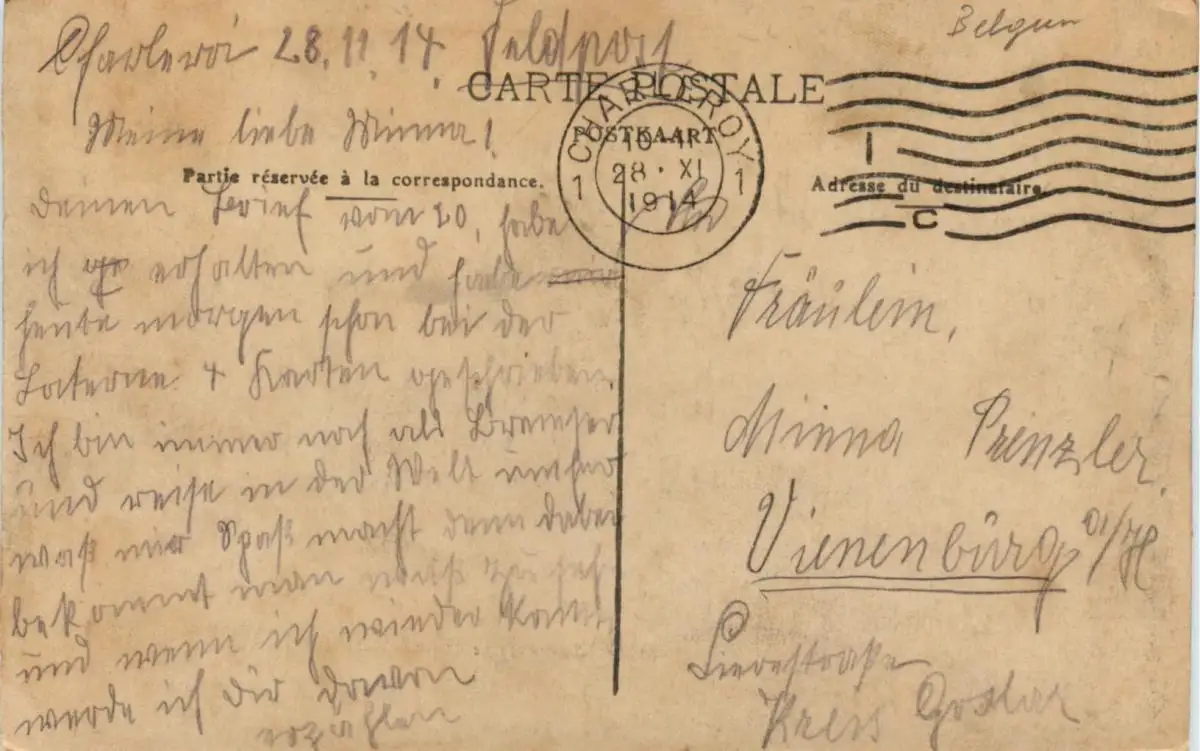 Belgien
Charleroi 28.11.14. Feldpost
CARTE POSTALE
POSTKAART
CHARLEROY
1 1
10-11
28 · XI
1914
1
C
Partie réservée à la correspondance.
Adresse du destinataire
Meine liebe Minna!
Deinen Brief vom 20, habe
ich erhalten und habe
heute morgen schon bei der
Laterne 4 Karten geschrieben.
Ich bin immer noch als Bremser
und reise in der Welt umher
waß mir Spaß macht denn dabei
bekommt man waß zu seh
und wenn ich wieder kom
werde ich Dir davon
erzählen
An
Fräulein,
Minna Prenzler.
Vienenburg a/H
Kreis Goslar